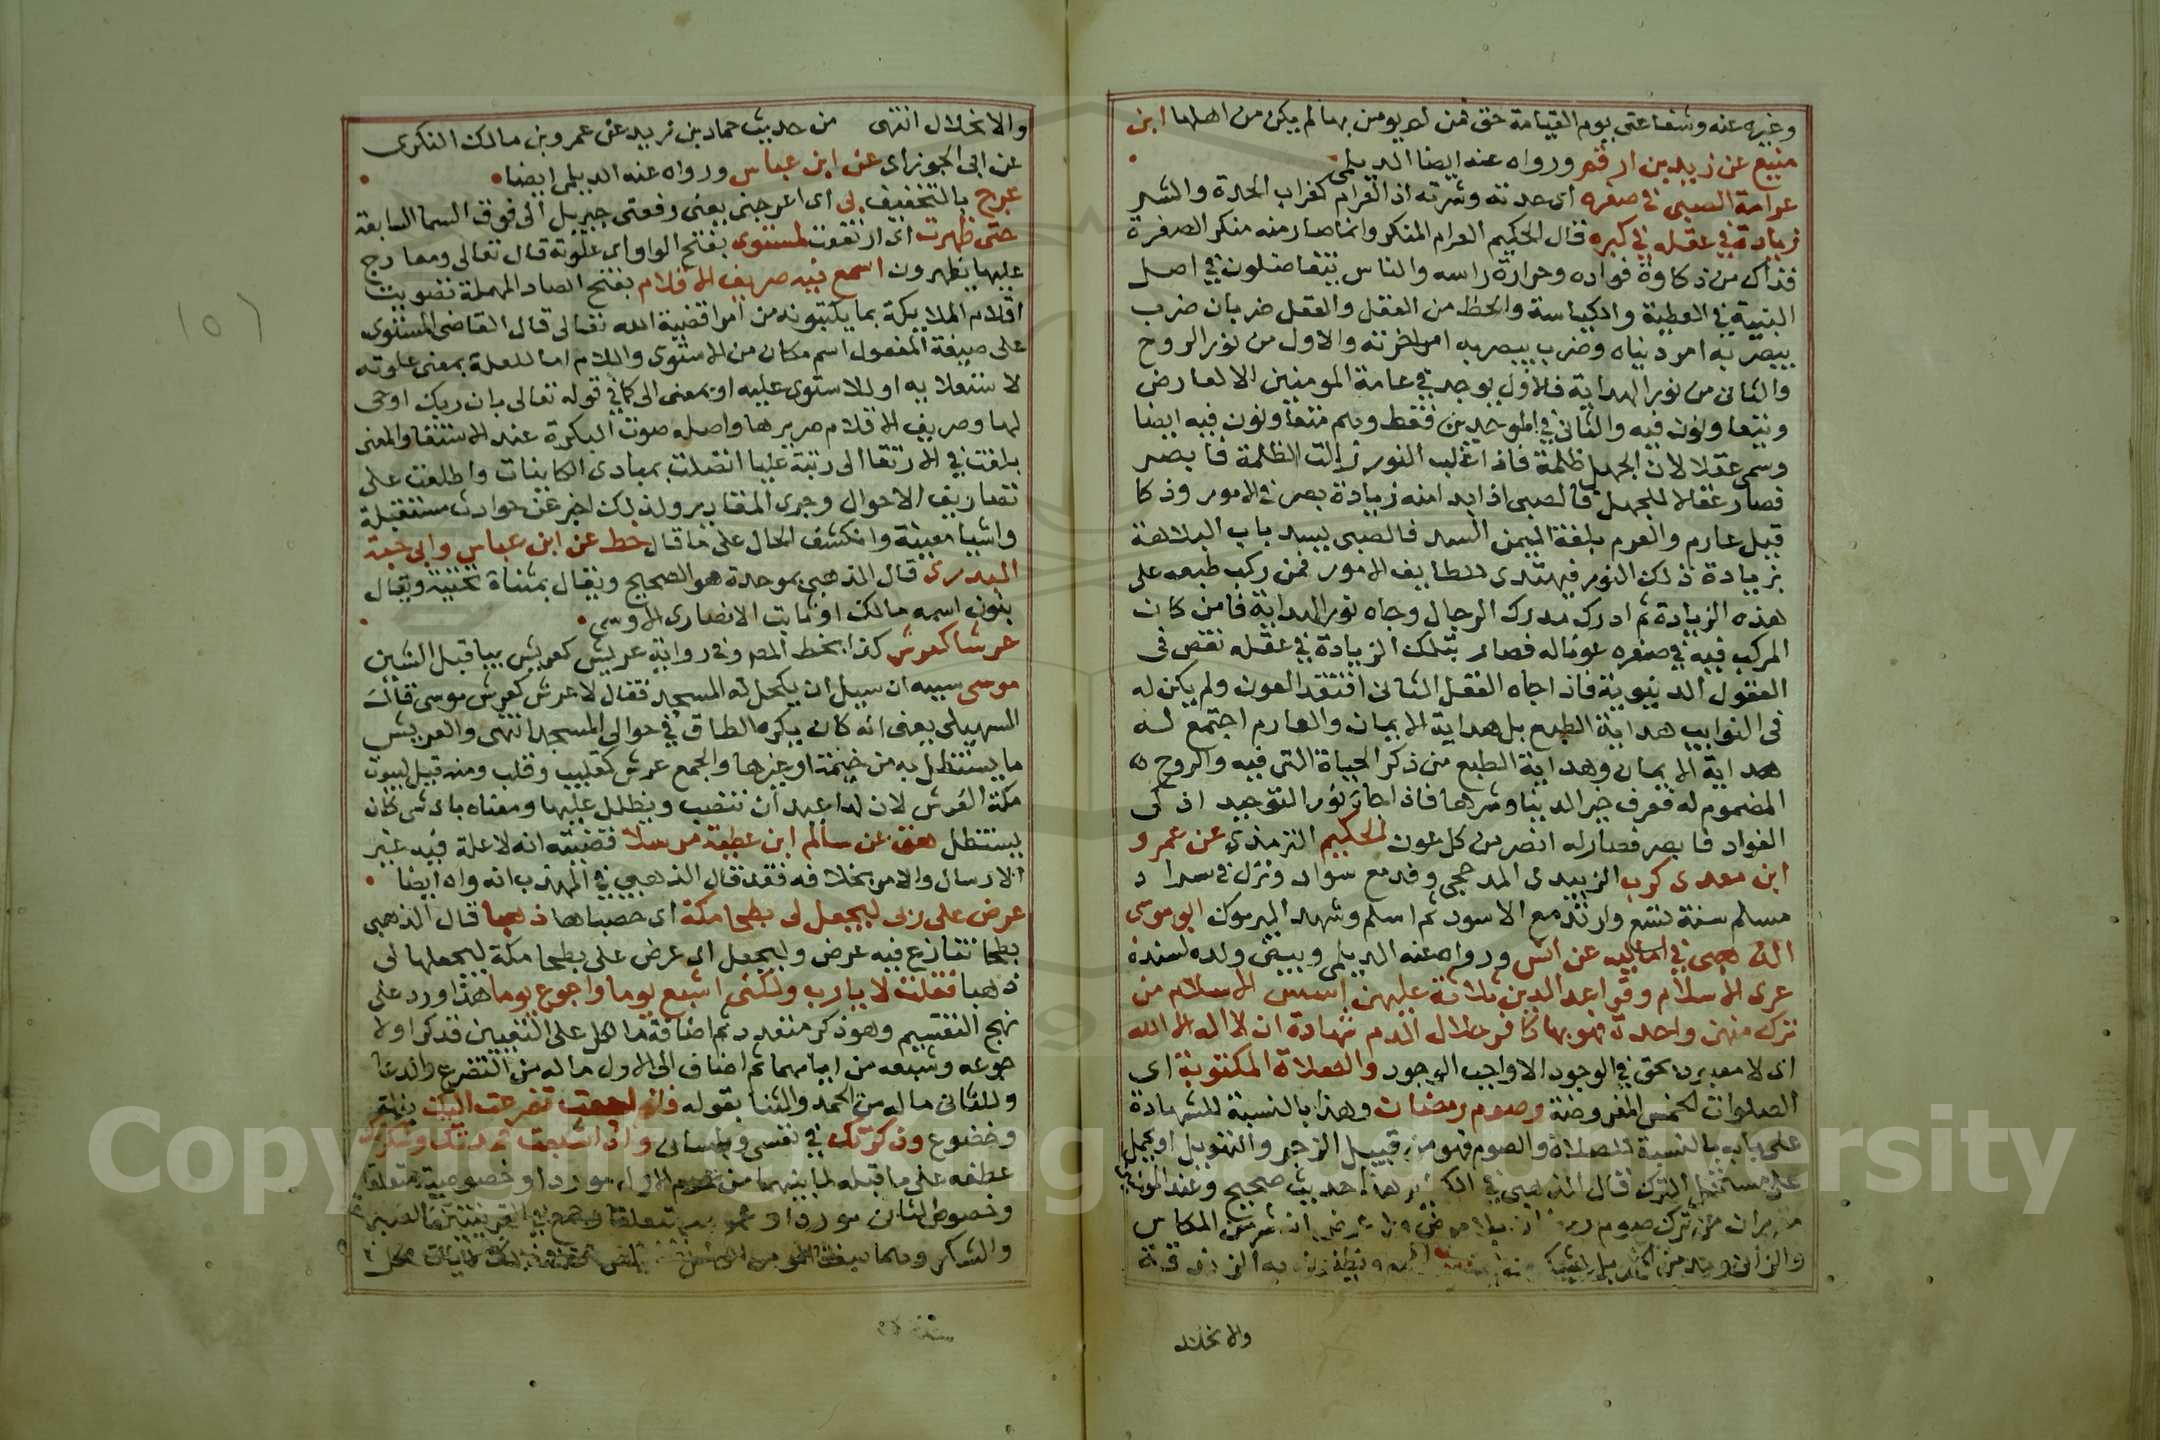 وغيره عنه وشفاعتى يوم القيامة حق فمن لم يومن بها لم يكن من اهلها ابن
منيع عن زيد بن ارقم ورواه عنه ايضا الديلمى
عرامة الصبى فى صغره اى حدته وشرته اذ العرام كغراب الحدة والشر
زيادة فى عقله فى كبره قال الحكيم العرام المنكر وانما صار منه منكر الصغرة
فذاك من ذكاوة فواده وحرارة راسه والناس يتفاضلون فى اصل
البنية فى الفطنة والكياسة والحظ من العقل والعقل ضربان ضرب
يبصر به امر دنياه وضرب يبصر به امر اخرته والاول من نور الروح
والثانى من نور الهداية فالاول يوجد فى عامة المومنين الا لعارض
ويتفاوتون فيه والثانى فى الموحدين فقط وهم متفاوتون فيه ايضا
وسمى عقلا لان الجهل ظلمة فاذا غلب النور زالت الظلمة فابصر
فصار عقالا للجهل فالصبى اذا بدا منه زيادة بصر فى الامور وذكا
قيل عارم والعرم بلغة اليمن السد فالصبى يسد باب البلاهة
بزيادة ذلك النور فيهتدى للطايف الامور فمن ركب طبعه على
هذه الزيادة ثم ادرك مدرك الرجال وجاه نور الهداية فامن كان
المركب فيه فى صغره عونا له فصار بتلك الزيادة فى عقله نقص فى
العقول الدنيوية فاذا جاه العقل الثانى افتقد العون ولم يكن له
فى النوايب هداية الطبع بل هداية الايمان والعارم اجتمع له
هداية الايمان وهداية الطبع من ذكر الحياة التى فيه والروح
المضموم له فعرف خير الدنيا وشرها فاذا جاز نور التوحيد اذكى
الفواد فابصر فصار له انصر من كل عون الحكيم الترمذى عن عمرو
ابن معدى كرب الزبيدى المدحجى وفد مع سواد ونزل فى مراد
مسلم سنة تسع وارتد مع الاسود ثم اسلم وشهد اليرموك ابو موسى
المدينى فى اماليه عن انس ورواه عنه الديلمى وبيض ولده لسنده
عرى الاسلام وقواعد الدين ثلاثة عليهن اسس الاسلام من
ترك منهن واحدة فهو بها كافر حلال الدم شهادة ان لا اله الا الله
اى لا معبود بحق فى الوجود الا واجب الوجود والصلاة المكتوبة اى
الصلوات الخمس المفروضة وصوم رمضان وهذا بالنسبة للشهادة
على بابه بالنسبة للصلاة والصوم فهو من قبيل الزجر والتهويل او يحمل
على مستحل الترك قال الذهبى فى الكباير هذا حديث صحيح وعند المومنين
ان من ترك صوم رمضان بلا مرض ولا غرض انه شر من المكاس
والزانى ومدمن الخمر بل يشكون فى اسلامه ويظنون به الزندقة
والانحلال
والانحلال انتهى من حديث حماد بن زيد عن عمرو بن مالك النكرى
عن ابى الجوزاى عن ابن عباس ورواه عنه الديلمى ايضا
عرج بالتخفيف بى اى اعرجنى يعنى رفعنى جبريل الى فوق السما السابعة
حتى ظهرت اى ارتفعت لمستوى بفتح الواو اى علوته قال تعالى ومعارج
عليها يظهرون اسمع فيه صريف الاقلام بفتح الصاد المهملة تصويت
اقلام الملايكة بما يكتبونه من امر اقضية الله تعالى قال القاضى المستوى
على صيغة المفعول اسم مكان من الاستوى واللام اما للعلة بمعنى علوته
لاستعلا به او للاستوى عليه او بمعنى الى كما فى قوله تعالى بان ربك اوحى
لها وصريف الاقلام صريرها واصله صوت البكرة عند الاستقا والمعنى
بلغت فى الارتقا الى رتبة عليا اتصلت بمبادى الكاينات واطلعت على
تصاريف الاحوال وجرى المقادير ولذلك اخبر عن حوادث مستقبلة
واشيا مغيبة وانكشف الحال على ما قال خط عن ابن عباس وابى حبة
البدرى قال الذهبى بموحدة هو الصحيح ويقال بمثناة تحتية ويقال
بنون اسمه مالك او ثابت الانصارى الاوسى
عرشا كعرش كذا بخط المص وفى رواية عريش كعريش بيا قبل الشين
موسى سببه ان سيل ان يكحل له المسجد فقال لا عرش كعرش موسى قال
السهيلى يعنى انه كان يكره الطاق فى حوالى المسجد انتهى والعريش
ما يستظل به من خيمة او غيرها والجمع عرش كقليب وقلب ومنه قيل لبيوت
مكة العرش لان لها عيدان تنصب ويظلل عليها ومعناه باى شى كان
يستظل هق عن سالم ابن عطية مرسلا قضيته انه لا علة فيه غير
الارسال والامر بخلافه فقد قال الذهبى فى المهذب انه واه ايضا
عرض على ربى ليجعل لى بطحا مكة اى حصباها ذهبا قال الذهبى
بطحا تنازع فيه عرض وليجعل اى عرض على بطحا مكة ليجعلها لى
ذهبا فقلت لا يا رب ولكنى اشبع يوما واجوع يوما هذا ورد على
نهج التقسيم وهو ذكر متعدد ثم اضافة ما لكل على التعيين فذكر اولا
جوعه وشبعه من ايامهما ثم اضاف الى الاول ماله من التضرع والدعا
وللثانى ماله من الحمد والثنا بقوله فاذا جعت تضرعت اليك بذلة
وخضوع وذكرتك فى نفسى وبلسانى واذا شبعت حمدتك وشكرتك
عطفه على ما قبله لما بينهما من عموم الاول موردا وخصوصيته متعلقا
وخصوص الثانى موردا وعمومه متعلقا وجمع فى القرينتين الصبر
والشكر وهما صفتا المومن